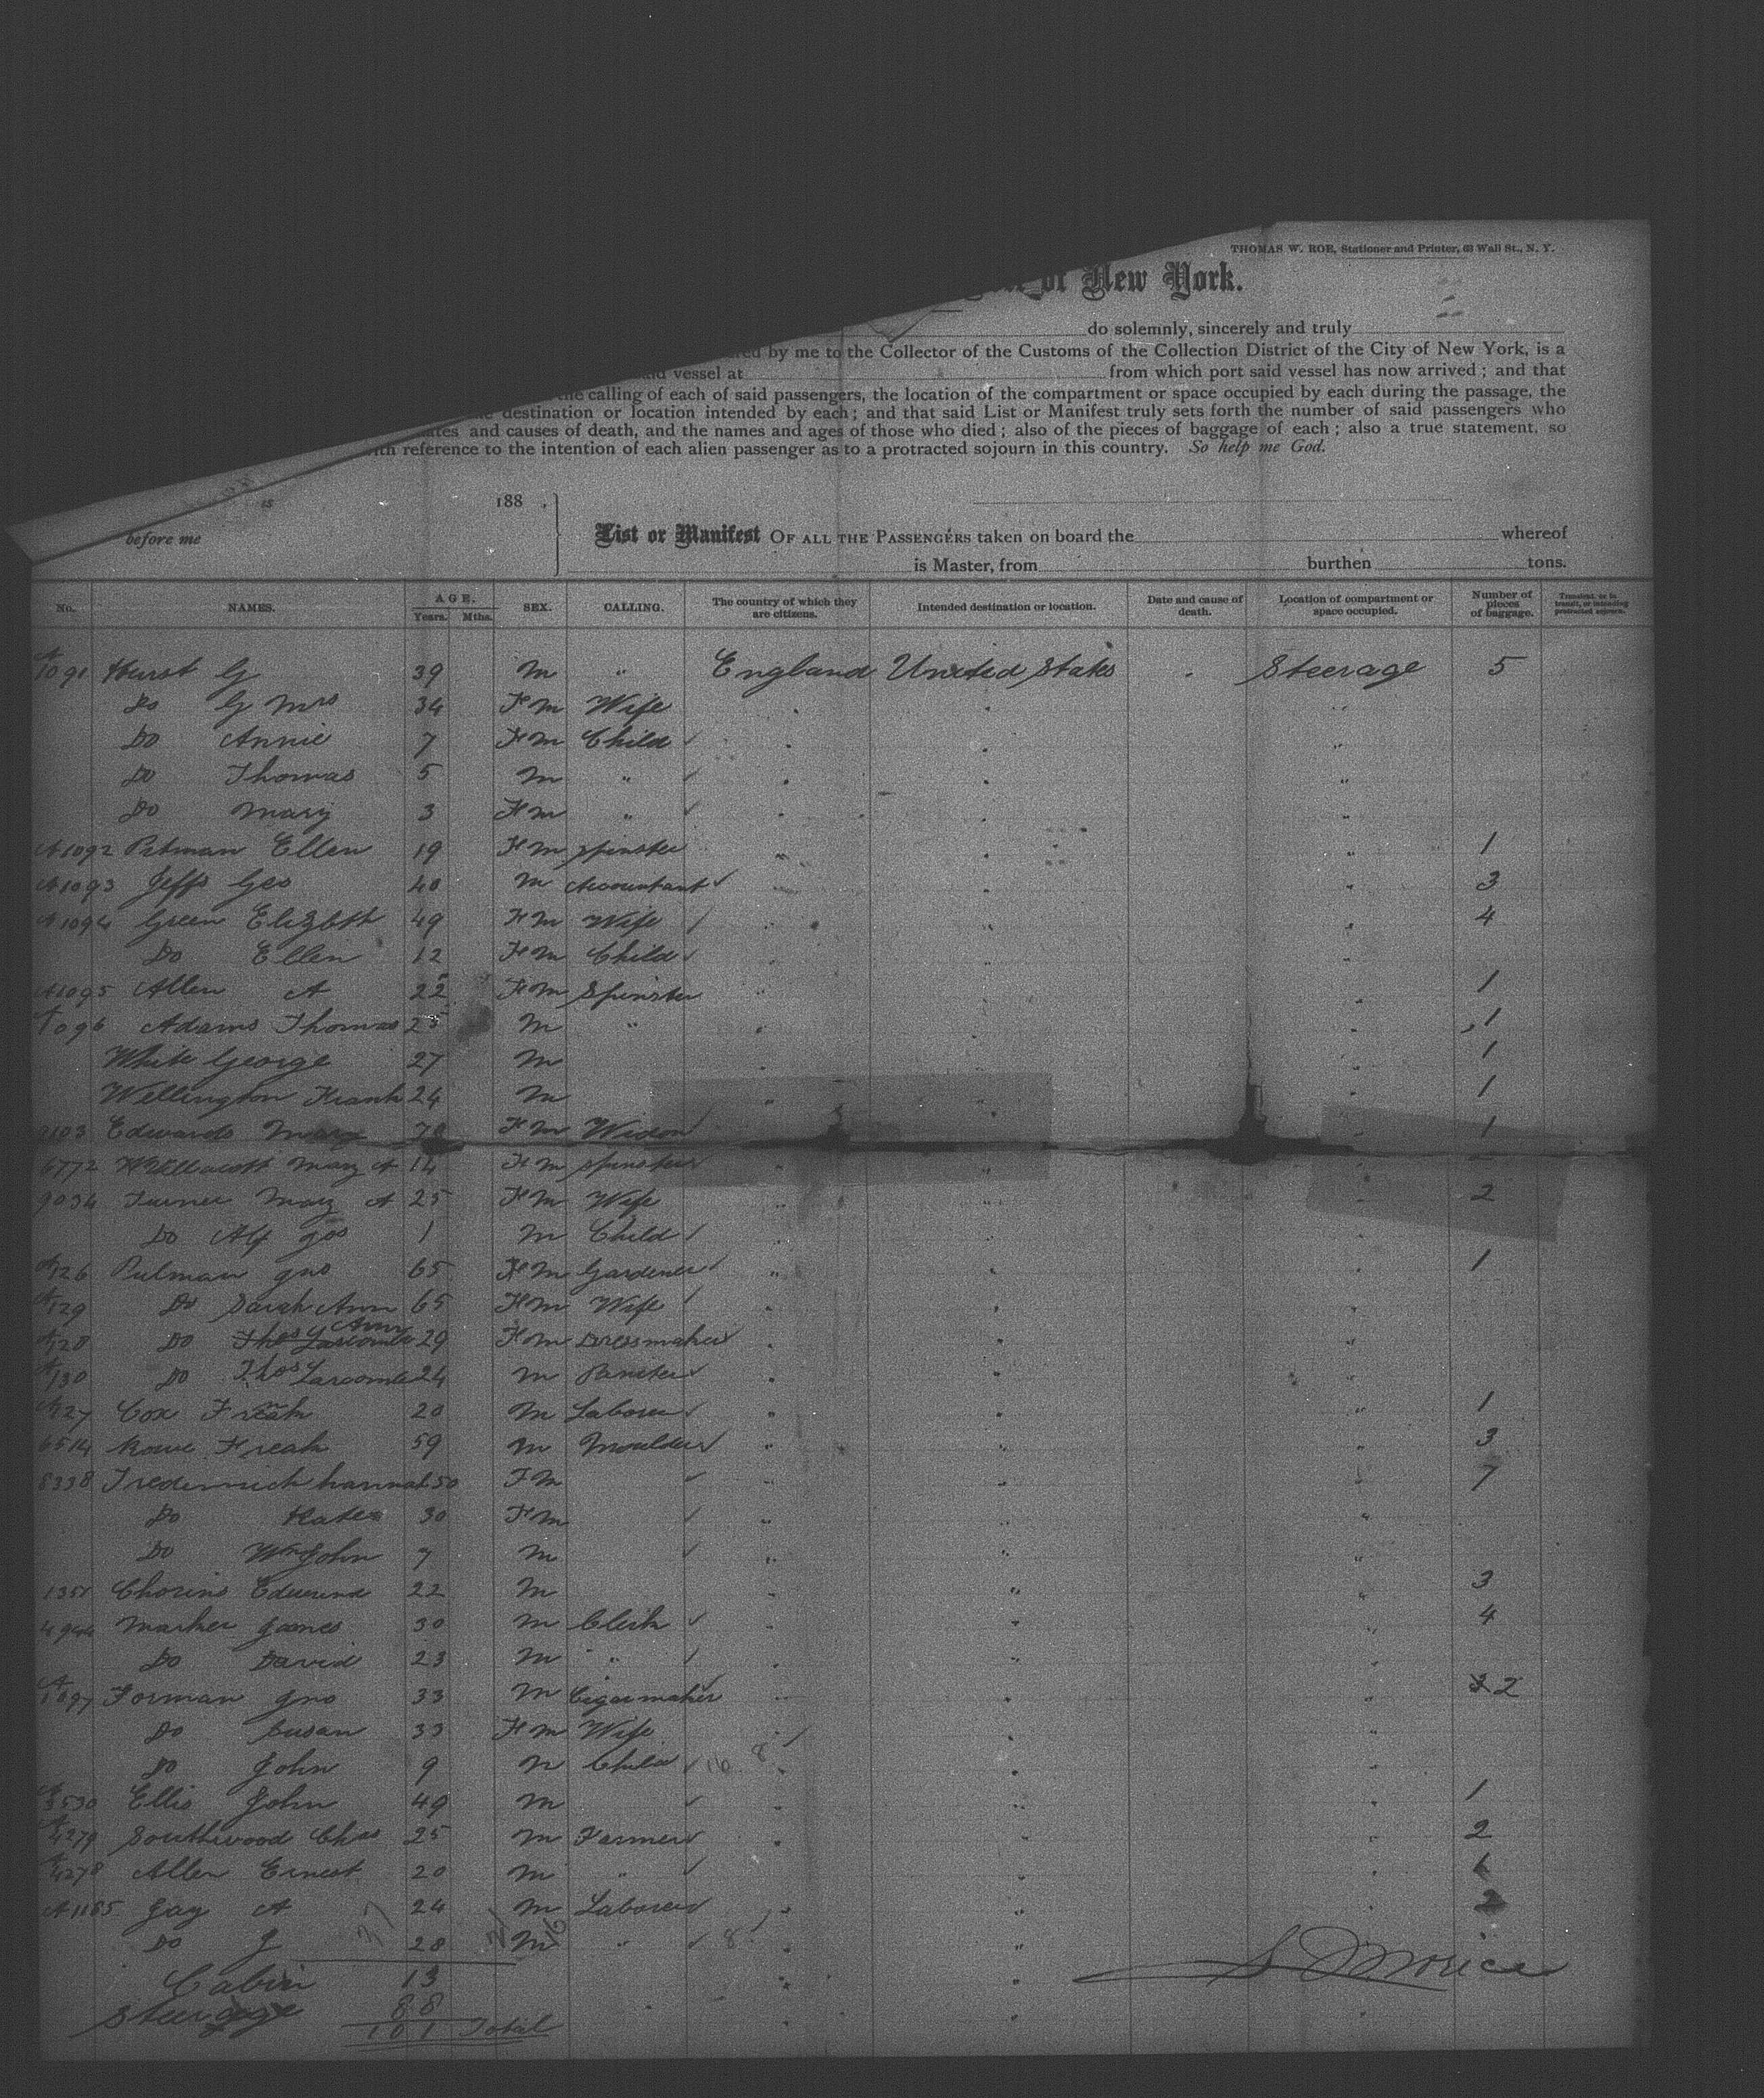 THOMAS W. ROE, Stationer and Printer, 63 Wall St., N. Y.
of New York.
do solemnly, sincerely and truly
by me to the Collector of the Customs of the Collection District of the City of New York, is a
vessel at from which port said vessel has now arrived; and that
the calling of each of said passengers, the location of the compartment or space occupied by each during the passage, the
destination or location intended by each; and that said List or Manifest truly sets forth the number of said passengers who
and causes of death, and the names and ages of those who died; also of the pieces of baggage of each; also a true statement, so
reference to the intention of each alien passenger as to a protracted sojourn in this country. So help me God.
188 .
before me
List or Manifest OF ALL THE PASSENGERS taken on board the whereof
is Master, from burthen tons.
No. NAMES. AGE. Years. Mths. SEX. CALLING. The country of which they are citizens. Intended destination or location. Date and cause of death. Location of compartment or space occupied. Number of pieces of baggage. Transient, or in transit, or intending protracted sojourn.
A 1091 Hurst G 39 M " England United States Steerage 5
Do G Mrs 34 Fm Wife
Do Annie 7 Fm Child
Do Thomas 5 M "
Do Mary 3 Fm "
A1092 Ellen 19 Fm Spinster 1
A1093 Jeffs Geo 40 M Accountant 3
A1094 Green Elizbth 49 Fm Wife 4
Do Ellen 12 Fm Child
A1095 Allen A 22 Fm Spinster 1
1096 Adams Thomas 25 M " 1
White George 27 M 1
Wellington Frank 24 M 1
Edwards Mary Fm Widow 1
6772 Mary A 14 Fm Spinster
9034 Turner Mary A 25 Fm Wife 2
Do Alf Jos 1 M Child
A126 Pulman Jno 65 M Gardener 1
A129 Do Sarah Ann 65 Fm Wife
A128 Do Ann 29 Fm Dressmaker
A130 Do Thos Larcombe 24 M
A127 Cox 20 M Laborer 1
6514 Rowe 59 M Moulder 3
8338 hannah 50 Fm 7
Do Kate 30 Fm
Do Wm John 7 M
Edmund 22 M 3
James 30 M Clerk 4
Do David 23 M "
A 1097 Forman Jno 33 M Cigarmaker 2
Do Susan 33 Fm Wife
Do John 9 M Child 16 8
Ellis John 49 M 1
A 4279 Southwood Chas 25 M Farmer 2
A 4278 Allen Ernest 20 M "
A1165 Gay A 24 M Laborer 2
Do J 28 M " 8
Cabin 13
Steerage 88
101 Total